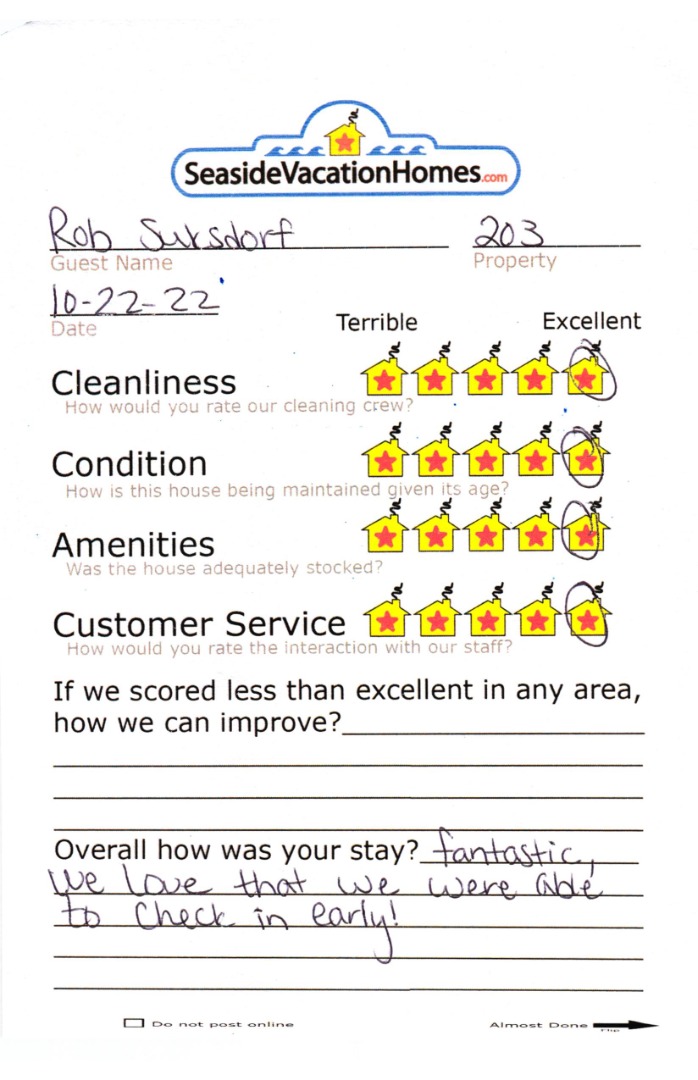 SeasideVacationHomes.com
Rob Suksdorf 203
Guest Name Property
10-22-22
Date
Terrible Excellent
Cleanliness
How would you rate our cleaning crew?
Condition
How is this house being maintained given its age?
Amenities
Was the house adequately stocked?
Customer Service
How would you rate the interaction with our staff?
If we scored less than excellent in any area,
how we can improve?
Overall how was your stay? fantastic,
We love that we were able
to check in early!
Do not post online Almost Done
Flip